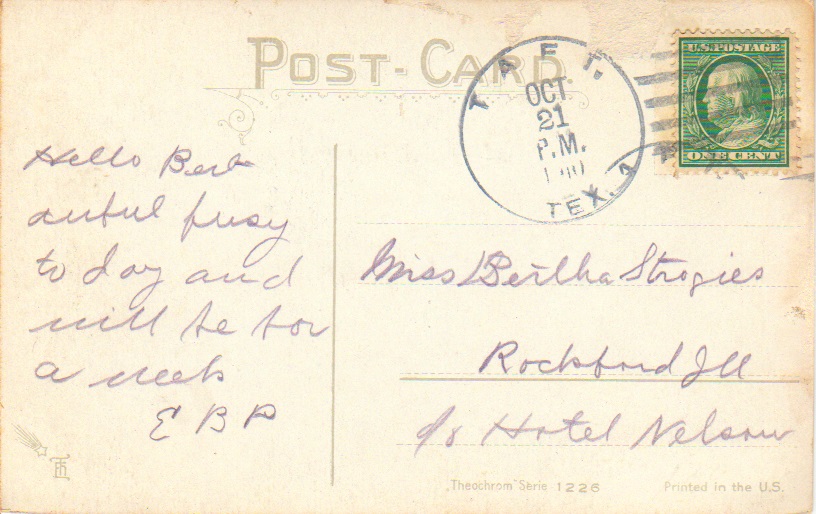 POST-CARD
TAFT.
OCT
21
P.M.
TEX.
U.S. POSTAGE
ONE CENT
Hello Bert
awful busy
to day and
will be for
a week
E B P
Miss Bertha Strogies
Rockford Ill
c/o Hotel Nelson
"Theochrom" Serie 1226
Printed in the U.S.